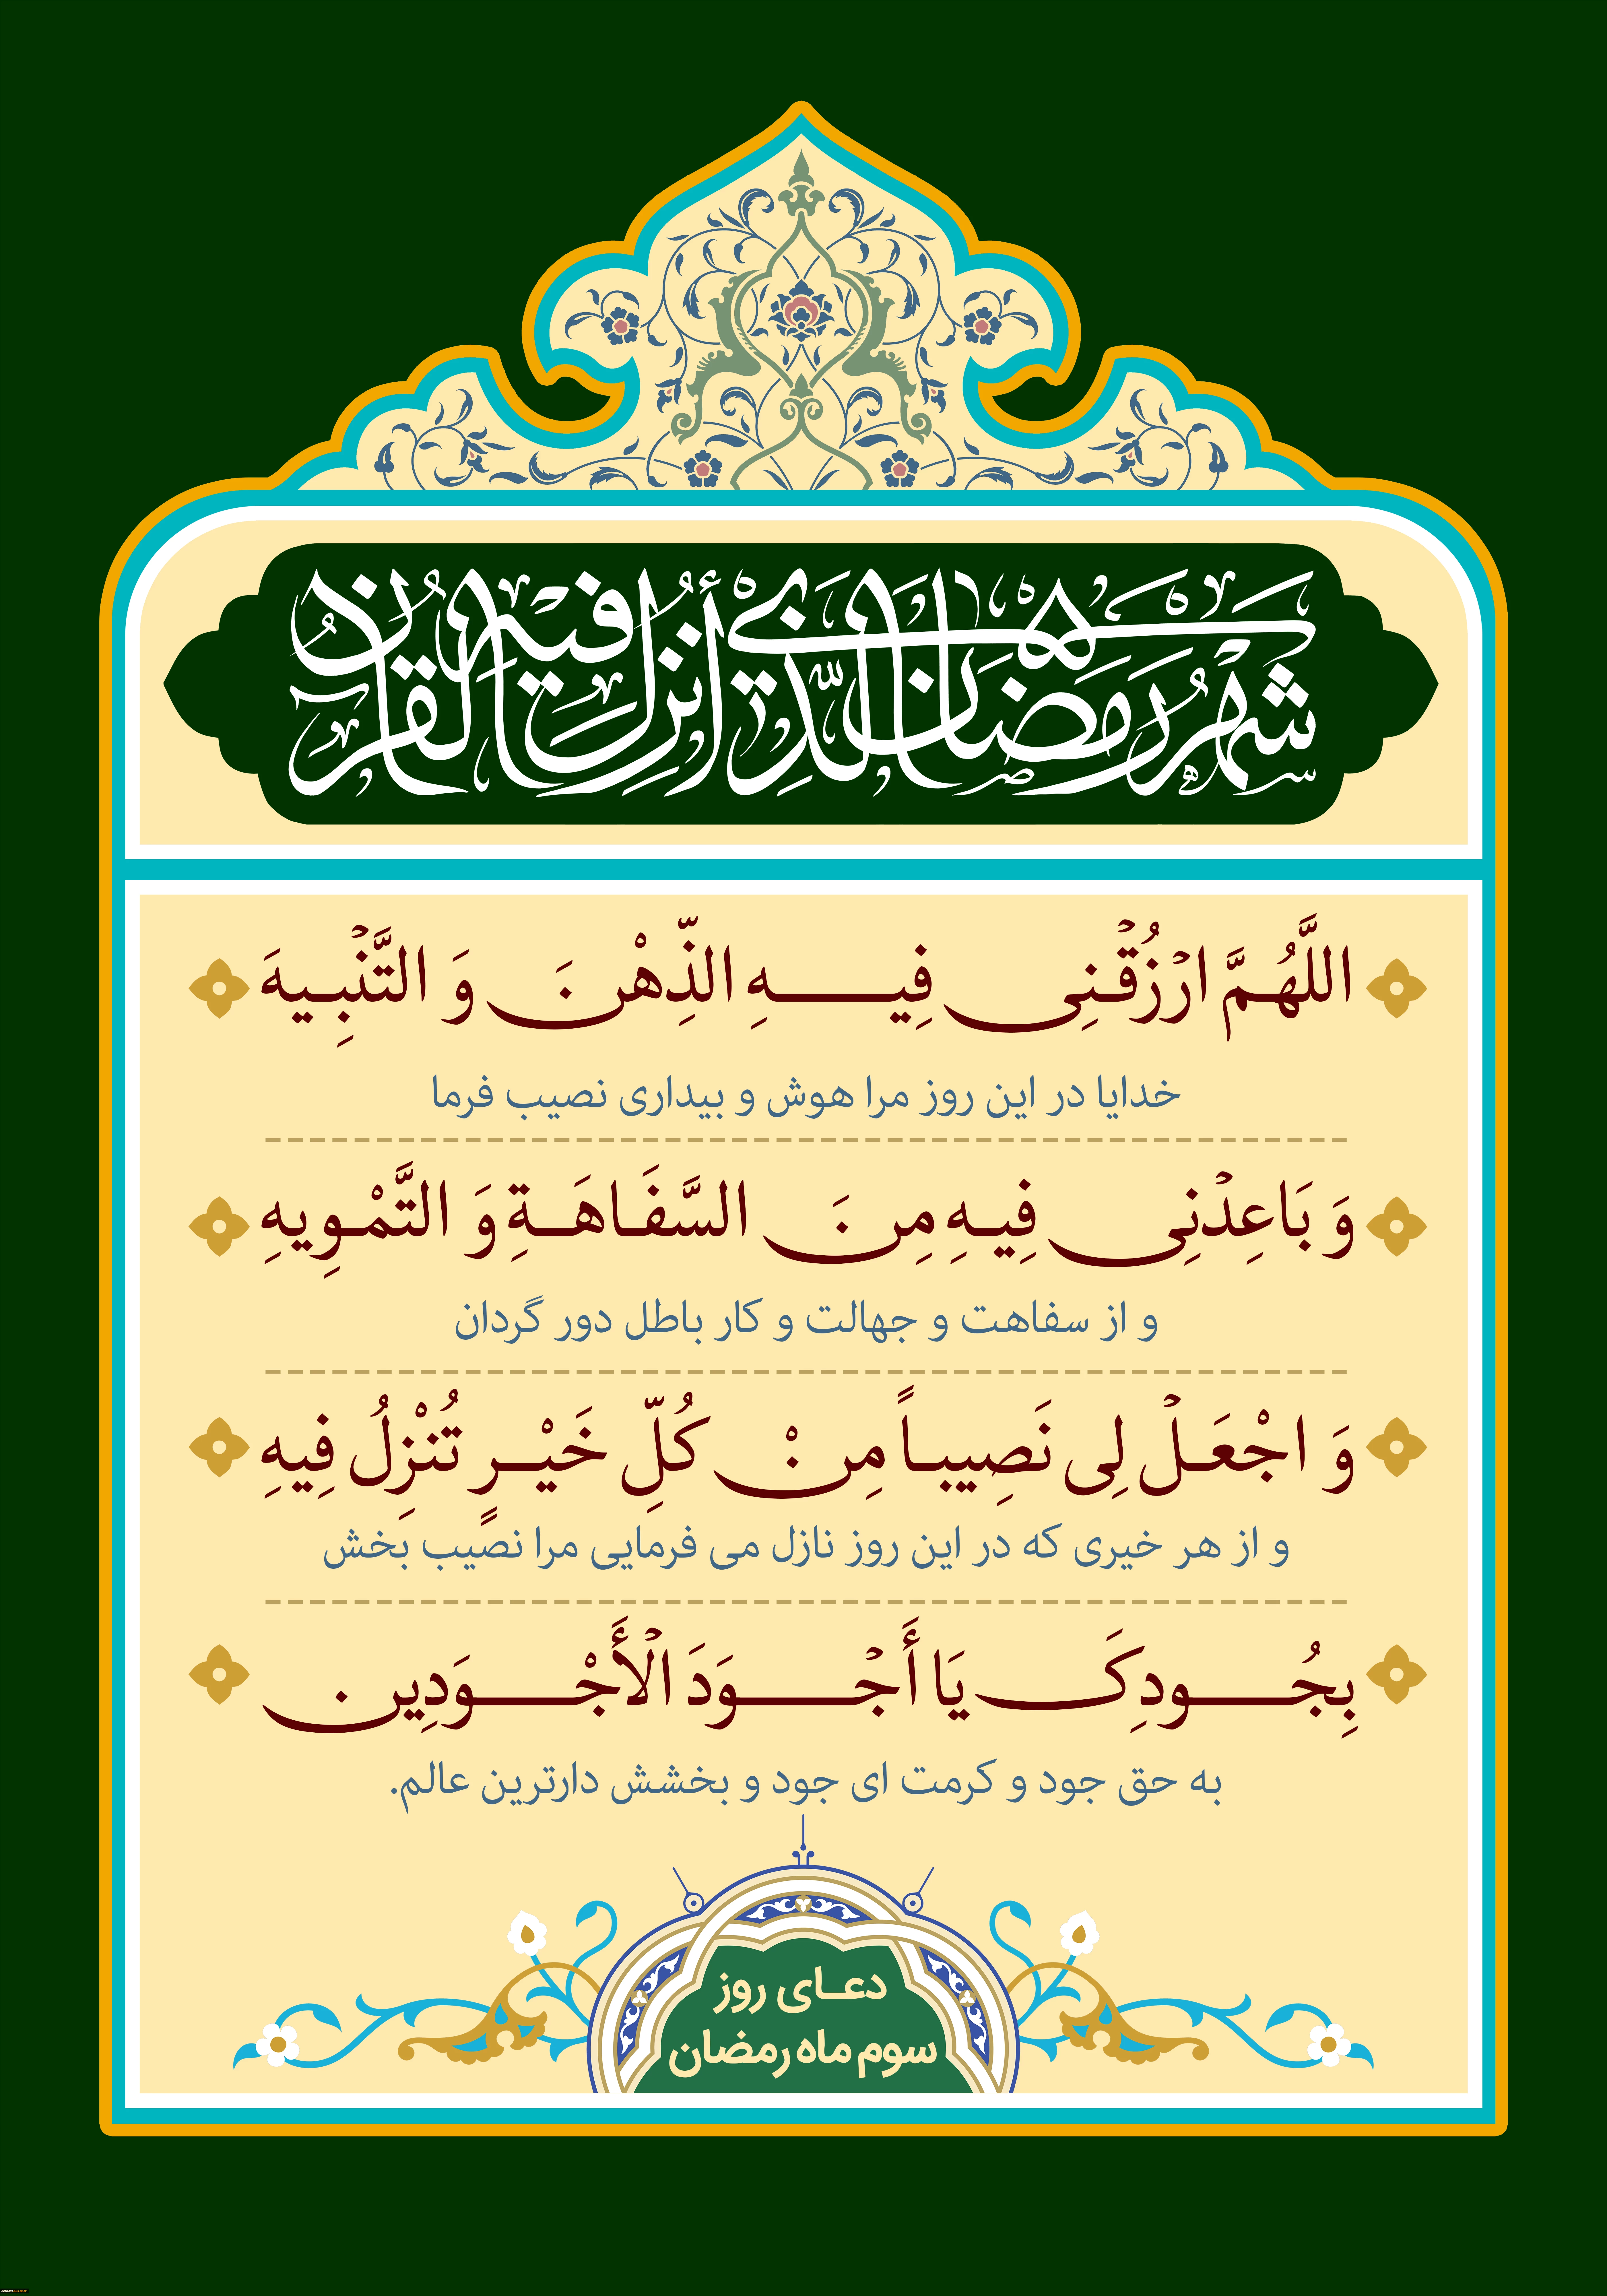 شهر رمضان الّذي أنزل فيه القرآن
اللَّهُمَّ ارْزُقْنِی فِیهِ الذِّهْنَ وَ التَّنْبِیهَ
خدایا در این روز مرا هوش و بیداری نصیب فرما
وَ بَاعِدْنِی فِیهِ مِنَ السَّفَاهَةِ وَ التَّمْوِیهِ
و از سفاهت و جهالت و کار باطل دور گردان
وَ اجْعَلْ لِی نَصِیباً مِنْ کُلِّ خَیْرٍ تُنْزِلُ فِیهِ
و از هر خیری که در این روز نازل می فرمایی مرا نصیب بخش
بِجُودِکَ یَا أَجْوَدَ الْأَجْوَدِین
به حق جود و کرمت ای جود و بخشش دارترین عالم.
دعای روز
سوم ماه رمضان